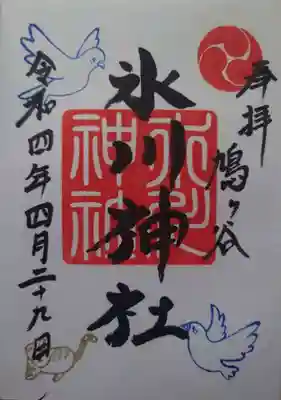 奉拝
鳩ヶ谷
氷川神社
令和四年四月二十九日